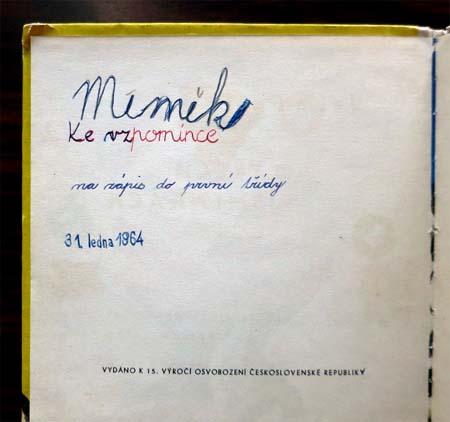 Miměk
Ke vzpomínce
na zápis do první třídy
31. ledna 1964
VYDÁNO K 15. VÝROČÍ OSVOBOZENÍ ČESKOSLOVENSKÉ REPUBLIKY